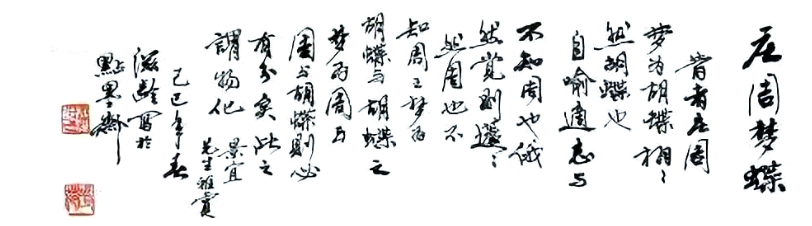 庄周梦蝶
昔者庄周
梦为胡蝶栩〻
然胡蝶也
自喻適志与
不知周也俄
然觉则蘧〻
然周也不
知周之梦为
胡蝶与胡蝶之
梦为周与
周与胡蝶则必
有分矣此之
謂物化 景宜
先生雅賞
己巳年春
滋齡寫於
點墨齋